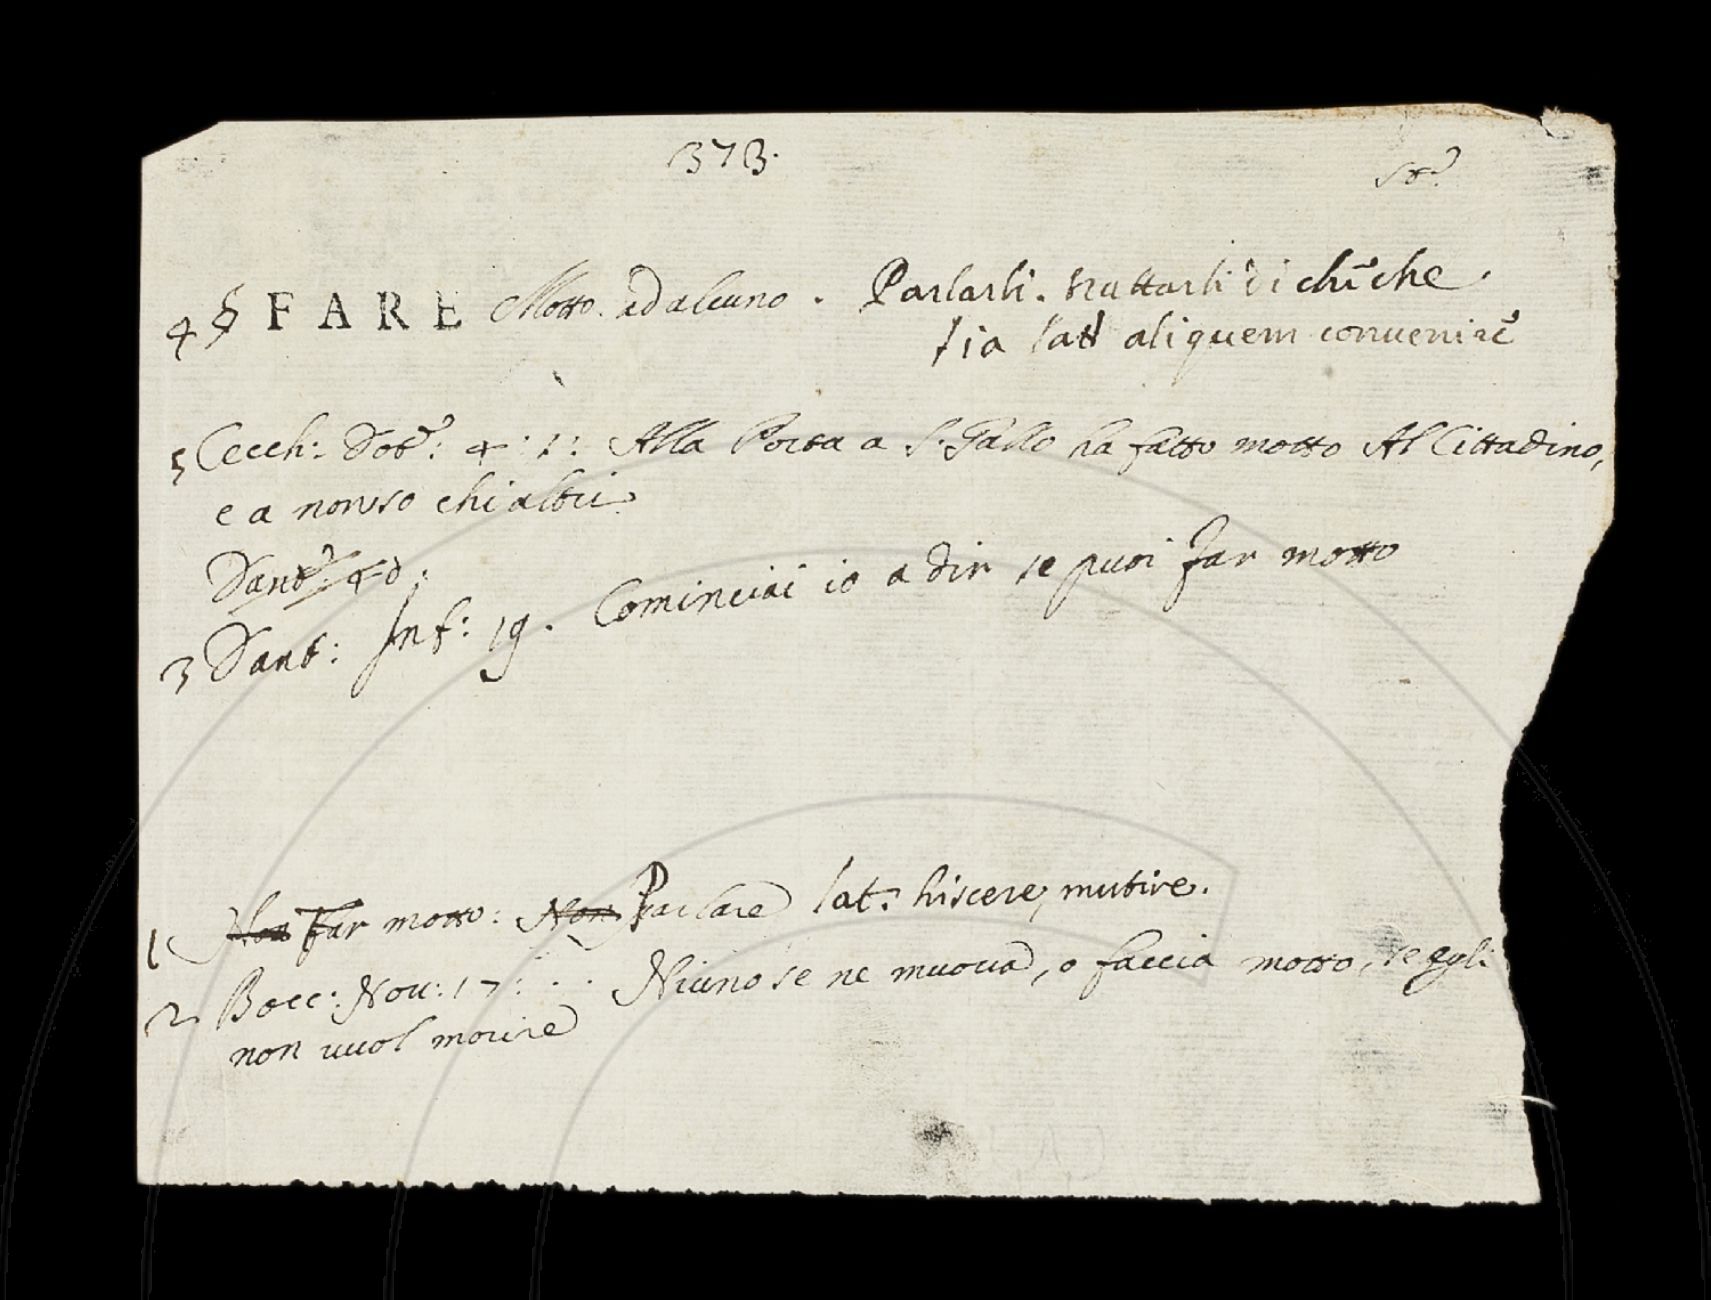 373.
4 § FARE Motto. ad alcuno. Parlarli. trattarli di chi che
sia lat aliquem convenire
5 Cecch: Dot: 4: 1: Alla Porta a S. Gallo ha fatto motto Al Cittadino,
e a non so chi altri
Dant: 40.
3 Dant: Inf: 19. Cominciai io a dir se puoi far motto
1 Non Far motto: Non Parlare lat: hiscere, mutire.
2 Bocc: Nov: 17: . . Niuno se ne muova, o faccia motto, se egli
non vuol morire